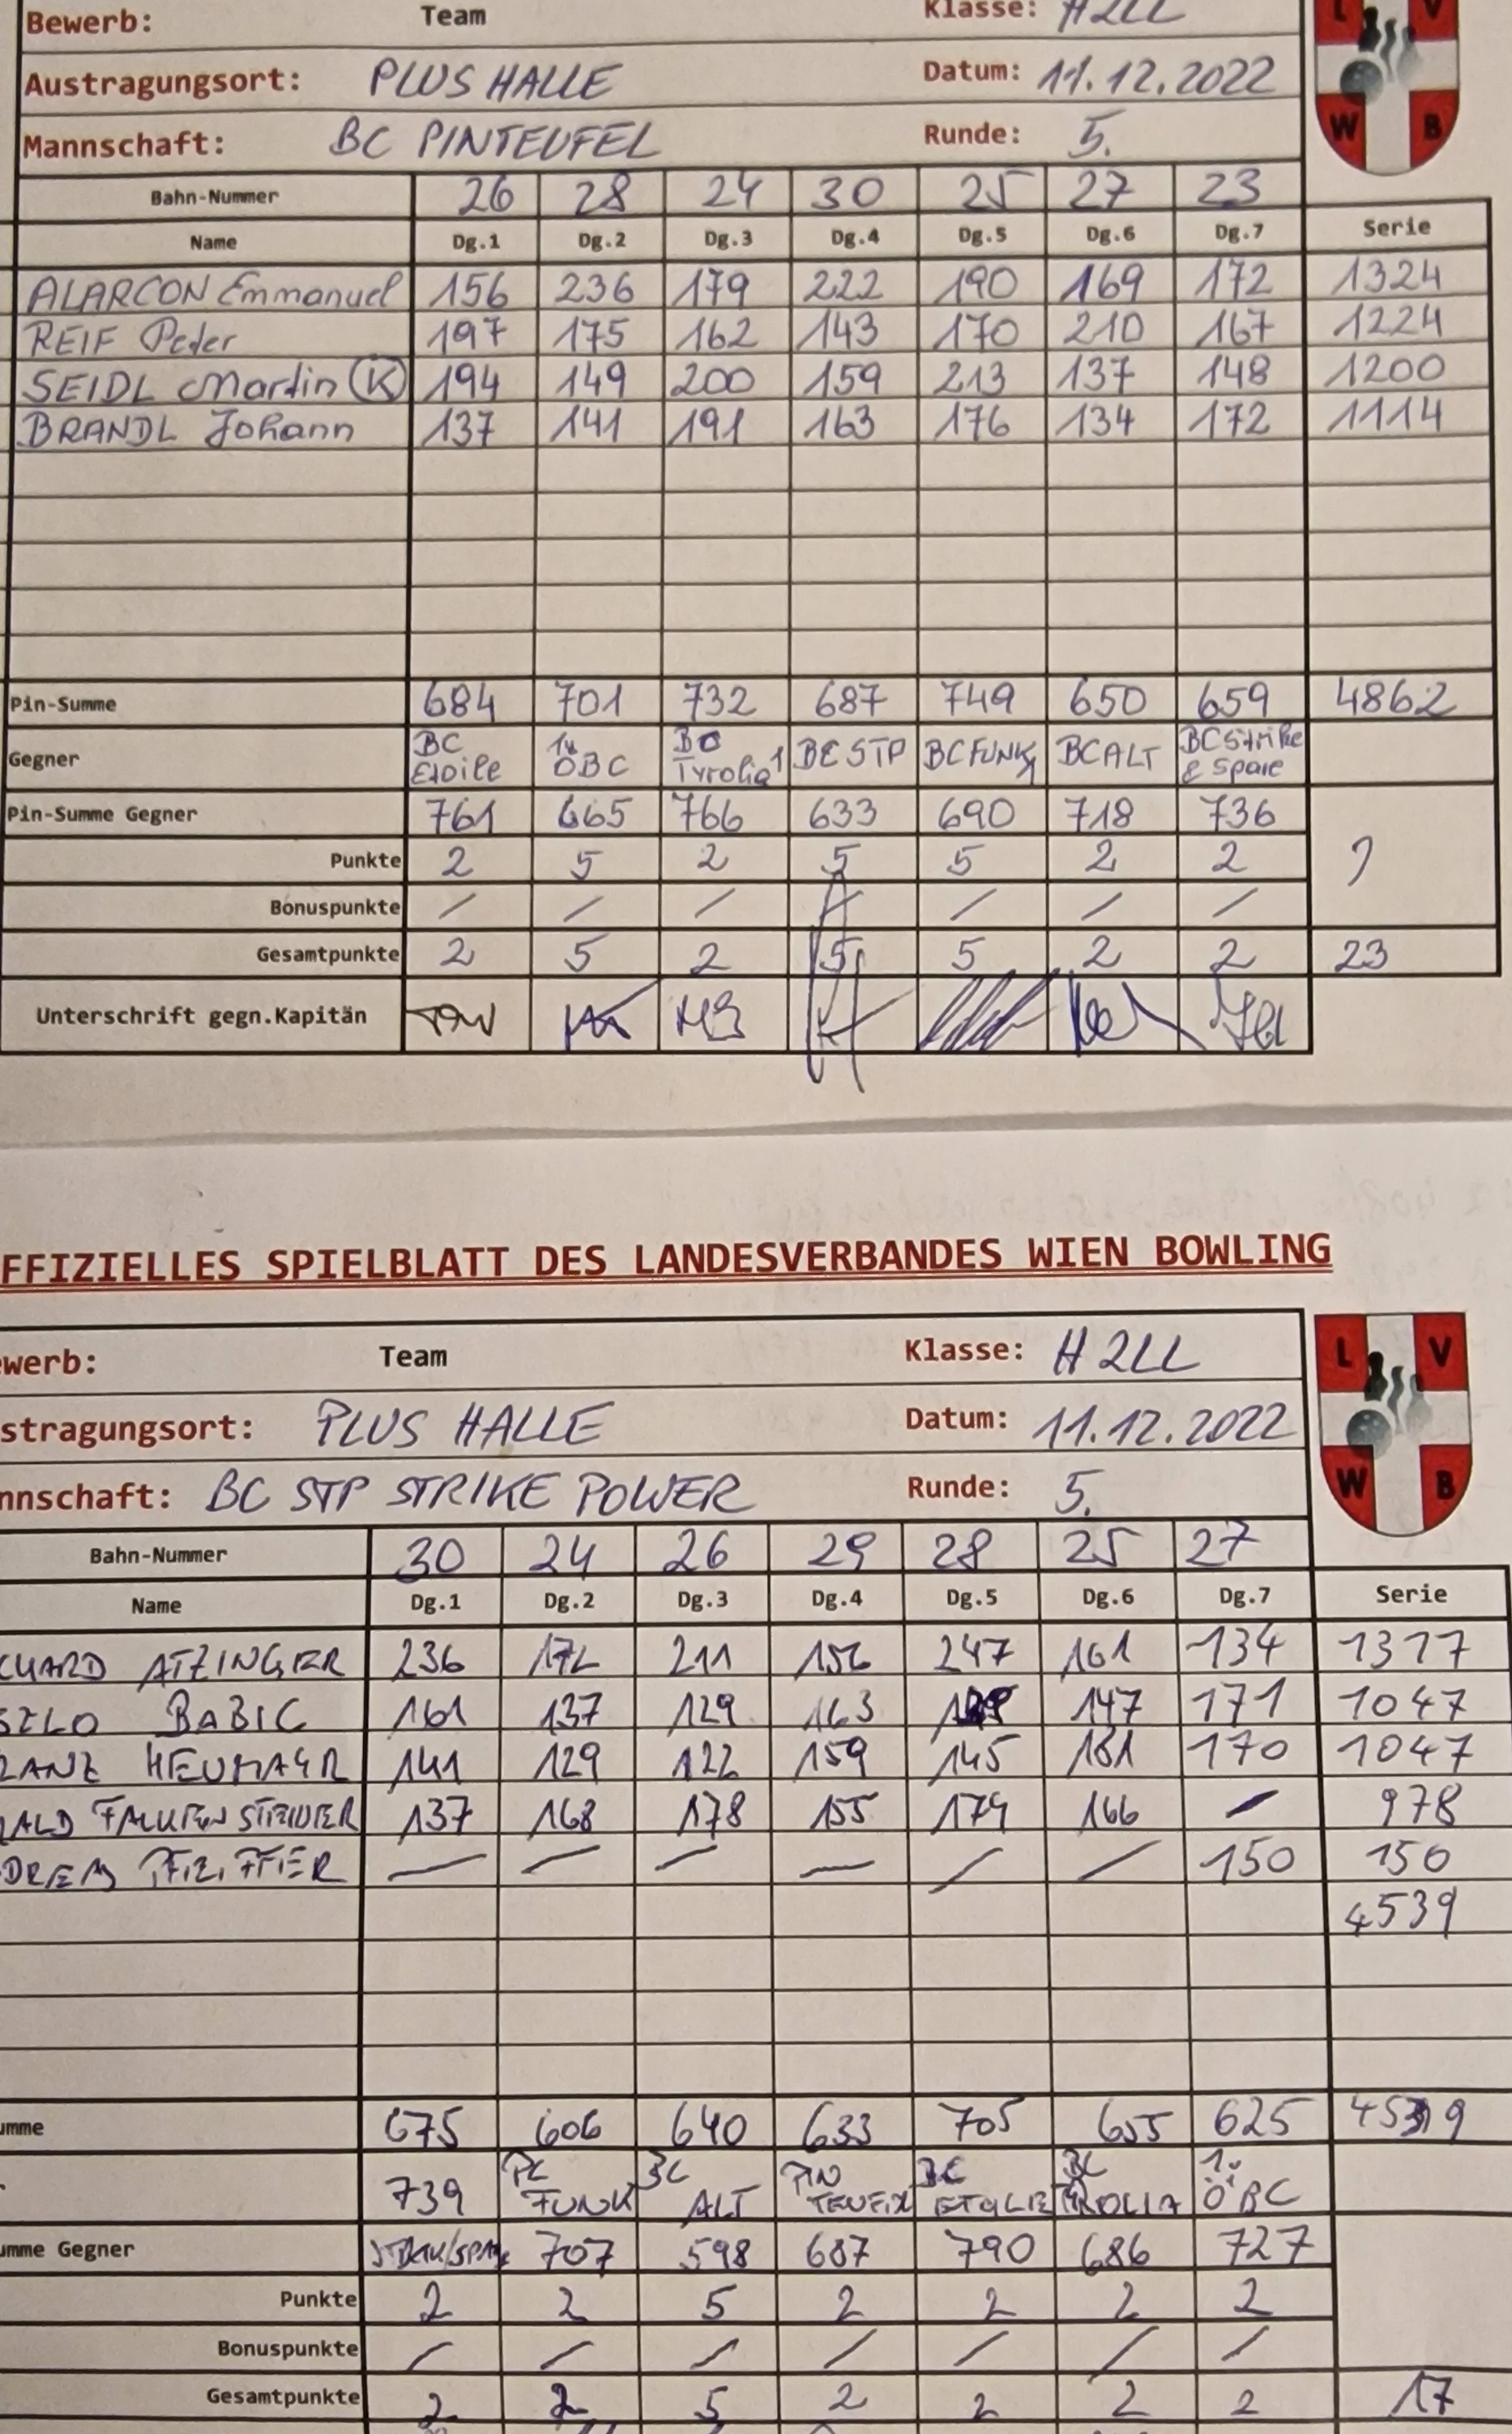 Bewerb: Team Klasse: H2LL
Austragungsort: PLUS HALLE Datum: 11.12.2022
Mannschaft: BC PINTEUFEL Runde: 5.
L V
W B
Bahn-Nummer 26 28 24 30 25 27 23
Name Dg.1 Dg.2 Dg.3 Dg.4 Dg.5 Dg.6 Dg.7 Serie
ALARCON Emmanuel 156 236 179 222 190 169 172 1324
REIF Peter 197 175 162 143 170 210 167 1224
SEIDL Martin (K) 194 149 200 159 213 137 148 1200
BRANDL Johann 137 141 191 163 176 134 172 1114
Pin-Summe 684 701 732 687 749 650 659 4862
Gegner BC Etoile 1. ÖBC BC Tyrolia 1 BC STP BC FUNK BC ALT BC Strike & Spare
Pin-Summe Gegner 761 665 766 633 690 718 736
Punkte 2 5 2 5 5 2 2
Bonuspunkte / / / / / / /
Gesamtpunkte 2 5 2 5 5 2 2 23
Unterschrift gegn.Kapitän
FFIZIELLES SPIELBLATT DES LANDESVERBANDES WIEN BOWLING
ewerb: Team Klasse: H2LL
stragungsort: PLUS HALLE Datum: 11.12.2022
nnschaft: BC STP STRIKE POWER Runde: 5.
L V
W B
Bahn-Nummer 30 24 26 29 28 25 27
Name Dg.1 Dg.2 Dg.3 Dg.4 Dg.5 Dg.6 Dg.7 Serie
CHARD ATZINGER 236 172 211 156 247 161 134 1317
SELO BABIC 161 137 129 163 147 171 1047
RANZ HEUMAYR 141 129 122 159 145 181 170 1047
ALD FALKENSTEINER 137 168 178 155 174 166 - 978
DREAS PFEIFFER - - - - / / 150 150
4539
umme 675 606 640 633 705 655 625 4539
739 BC FUNK BC ALT PIN TEUFEL BC ETOILE BC TYROLIA 1. ÖBC
umme Gegner STRIK/SPARE 707 598 687 790 686 727
Punkte 2 2 5 2 2 2 2
Bonuspunkte / / / / / / /
Gesamtpunkte 2 2 5 2 2 2 2 17